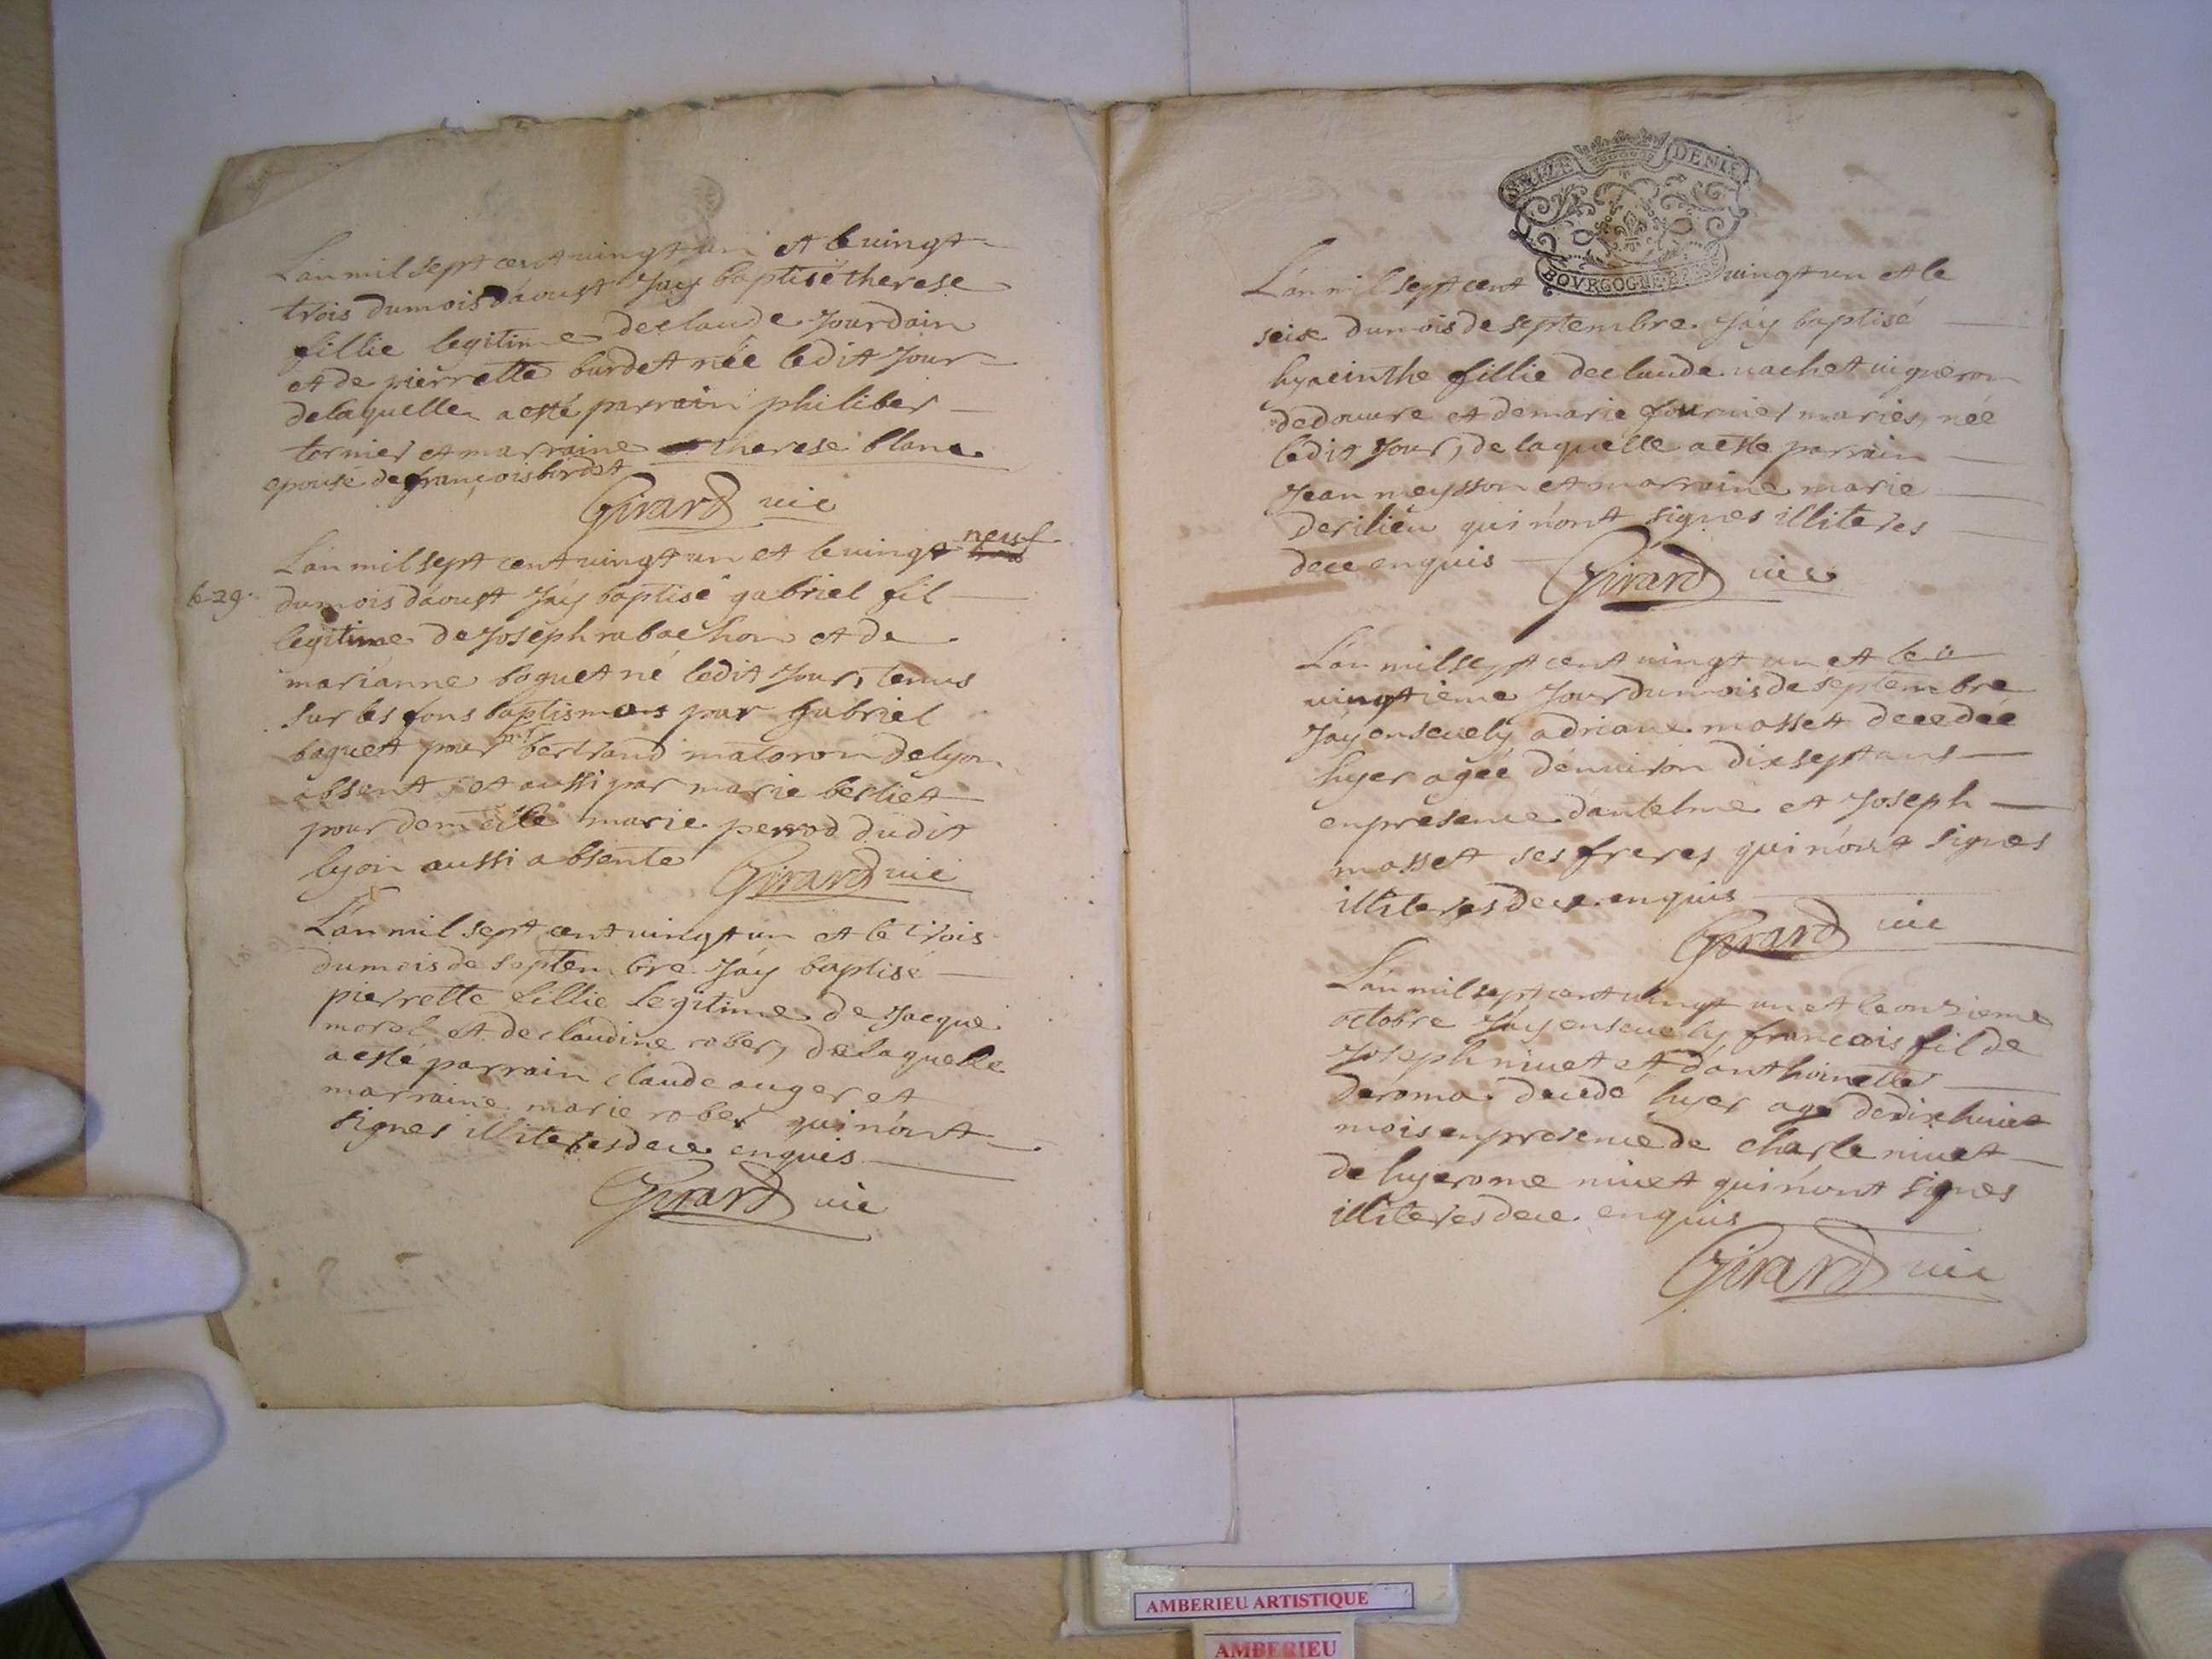 L'an mil sept cent vingt un et le vingt
trois du mois d'aoust J'ay baptisé therese
fillie legitime de claude Jourdain
et de pierrette burdet née ledit Jour
de laquelle a esté parrain philiber
tornier et marraine therese blanc
epouse de françois burdet
Girard vic
L'an mil sept cent vingt un et le vingt neuf
le 29.
du mois d'aoust J'ay baptisé gabriel fil
legitime de Joseph rabachon et de
marianne boguet né ledit Jour, tenus
sur les fons baptismaus par gabriel
boguet pour mr bertrand matoron de lyon
absent, et aussi par marie berliet
pour demelle marie perrod dudit
lyon aussi absente Girard vic
L'an mil sept cent vingt un et le trois
du mois de septembre J'ay baptisé
pierrette fillie legitime de Jacque
morel et de claudine rober, de laquelle
a esté parrain claude auger et
marraine marie rober qui n'ont
signes illiteres de ce enquis
Girard vic
SEIZE DENIE
BOVRGOGNE
L'an mil sept cent vingt un et le
seise du mois de septembre J'ay baptisé
hyacinthe fillie de claude vachet vigneron
de douvre et de marie fournier mariés, née
ledit Jour, de laquelle a esté parrain
Jean meysson et marraine marie
derilieu qui n'ont signes illiteres
de ce enquis Girard vic
L'an mil sept cent vingt un et le
vingtieme Jour du mois de septembre
J'ay ensevely adriane mosset decedée
hyer agée d'environ dix sept ans
en présence d'antelme et Joseph
mosset ses freres qui n'ont signes
illiteres de ce enquis
Girard vic
L'an mil sept cent vingt un et le onzieme
octobre J'ay ensevely francois fil de
Joseph nivet et d'anthoinette
deroma decedé hyer agé de dix huict
mois en presence de charle nivet
de hyerome nivet qui n'ont signes
illiteres de ce enquis
Girard vic
AMBERIEU ARTISTIQUE
AMBERIEU